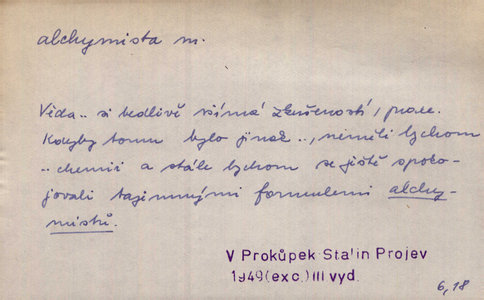 alchymista m.
Věda.. si bedlivě všímá zkušeností, praxe.
Kdyby tomu bylo jinak.., neměli bychom
..chemii a stále bychom se ještě spoko-
jovali tajemnými formulemi alchy-
mistů.
V Prokůpek Stalin Projev
1949(exc.) III vyd.
6,18